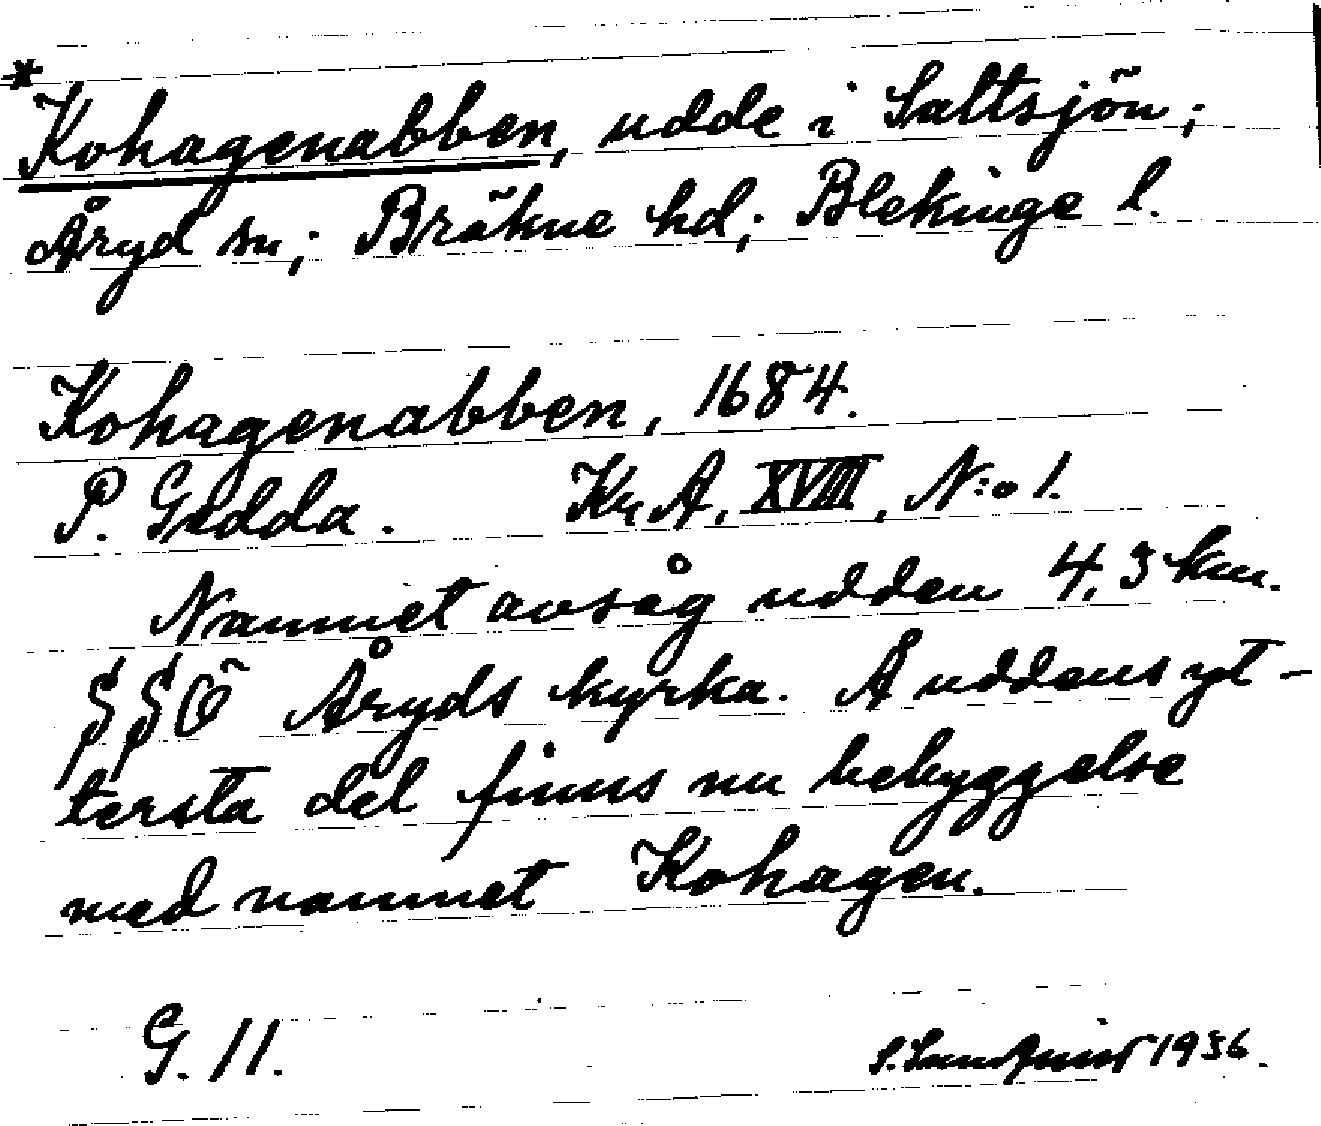 * Kohagenabben, udde i Saltsjön;
Åryd sn; Bräkne hd; Blekinge l.
Kohagenabben, 1684.
P. Gedda. Kr. A, XVIII, N:o 1.
Namnet avsåg udden 4,3 km.
SSÖ Åryds kyrka. Å uddens yt-
tersta del finns nu bebyggelse
med namnet Kohagen.
G. 11.
S. Sandquist 1936.